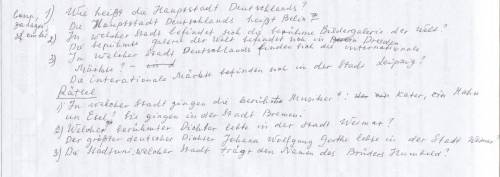 1) Wie heißt die Hauptstadt Deutschlands?
Die Hauptstadt Deutschlands heißt Belin
2) In welcher Stadt befindet sich die berühmte Bildergalerie der Welt?
Die berühmte Galerie der Welt befindet sich in Dresden
3) In welcher Stadt Deutschlands finden sich die internationale
Märchte? -
Die interationale Märchte befinden sich in der Stadt Leipzig?
Rätsel
1) In welcher Stadt gingen die berühmte Musiker?: Kater, ein Hahn
un Esel? Sie gingen in der Stadt Bremen.
2) Welcher berühmter Dichter lebte in der Stadt Weimar?
Der größter deutscher Dichter Johann Wolfgang Goethe lebte in der Stadt Weimar
3) Die Stadtuni, welcher Stadt trägt den Namen des Brüders Humbold?